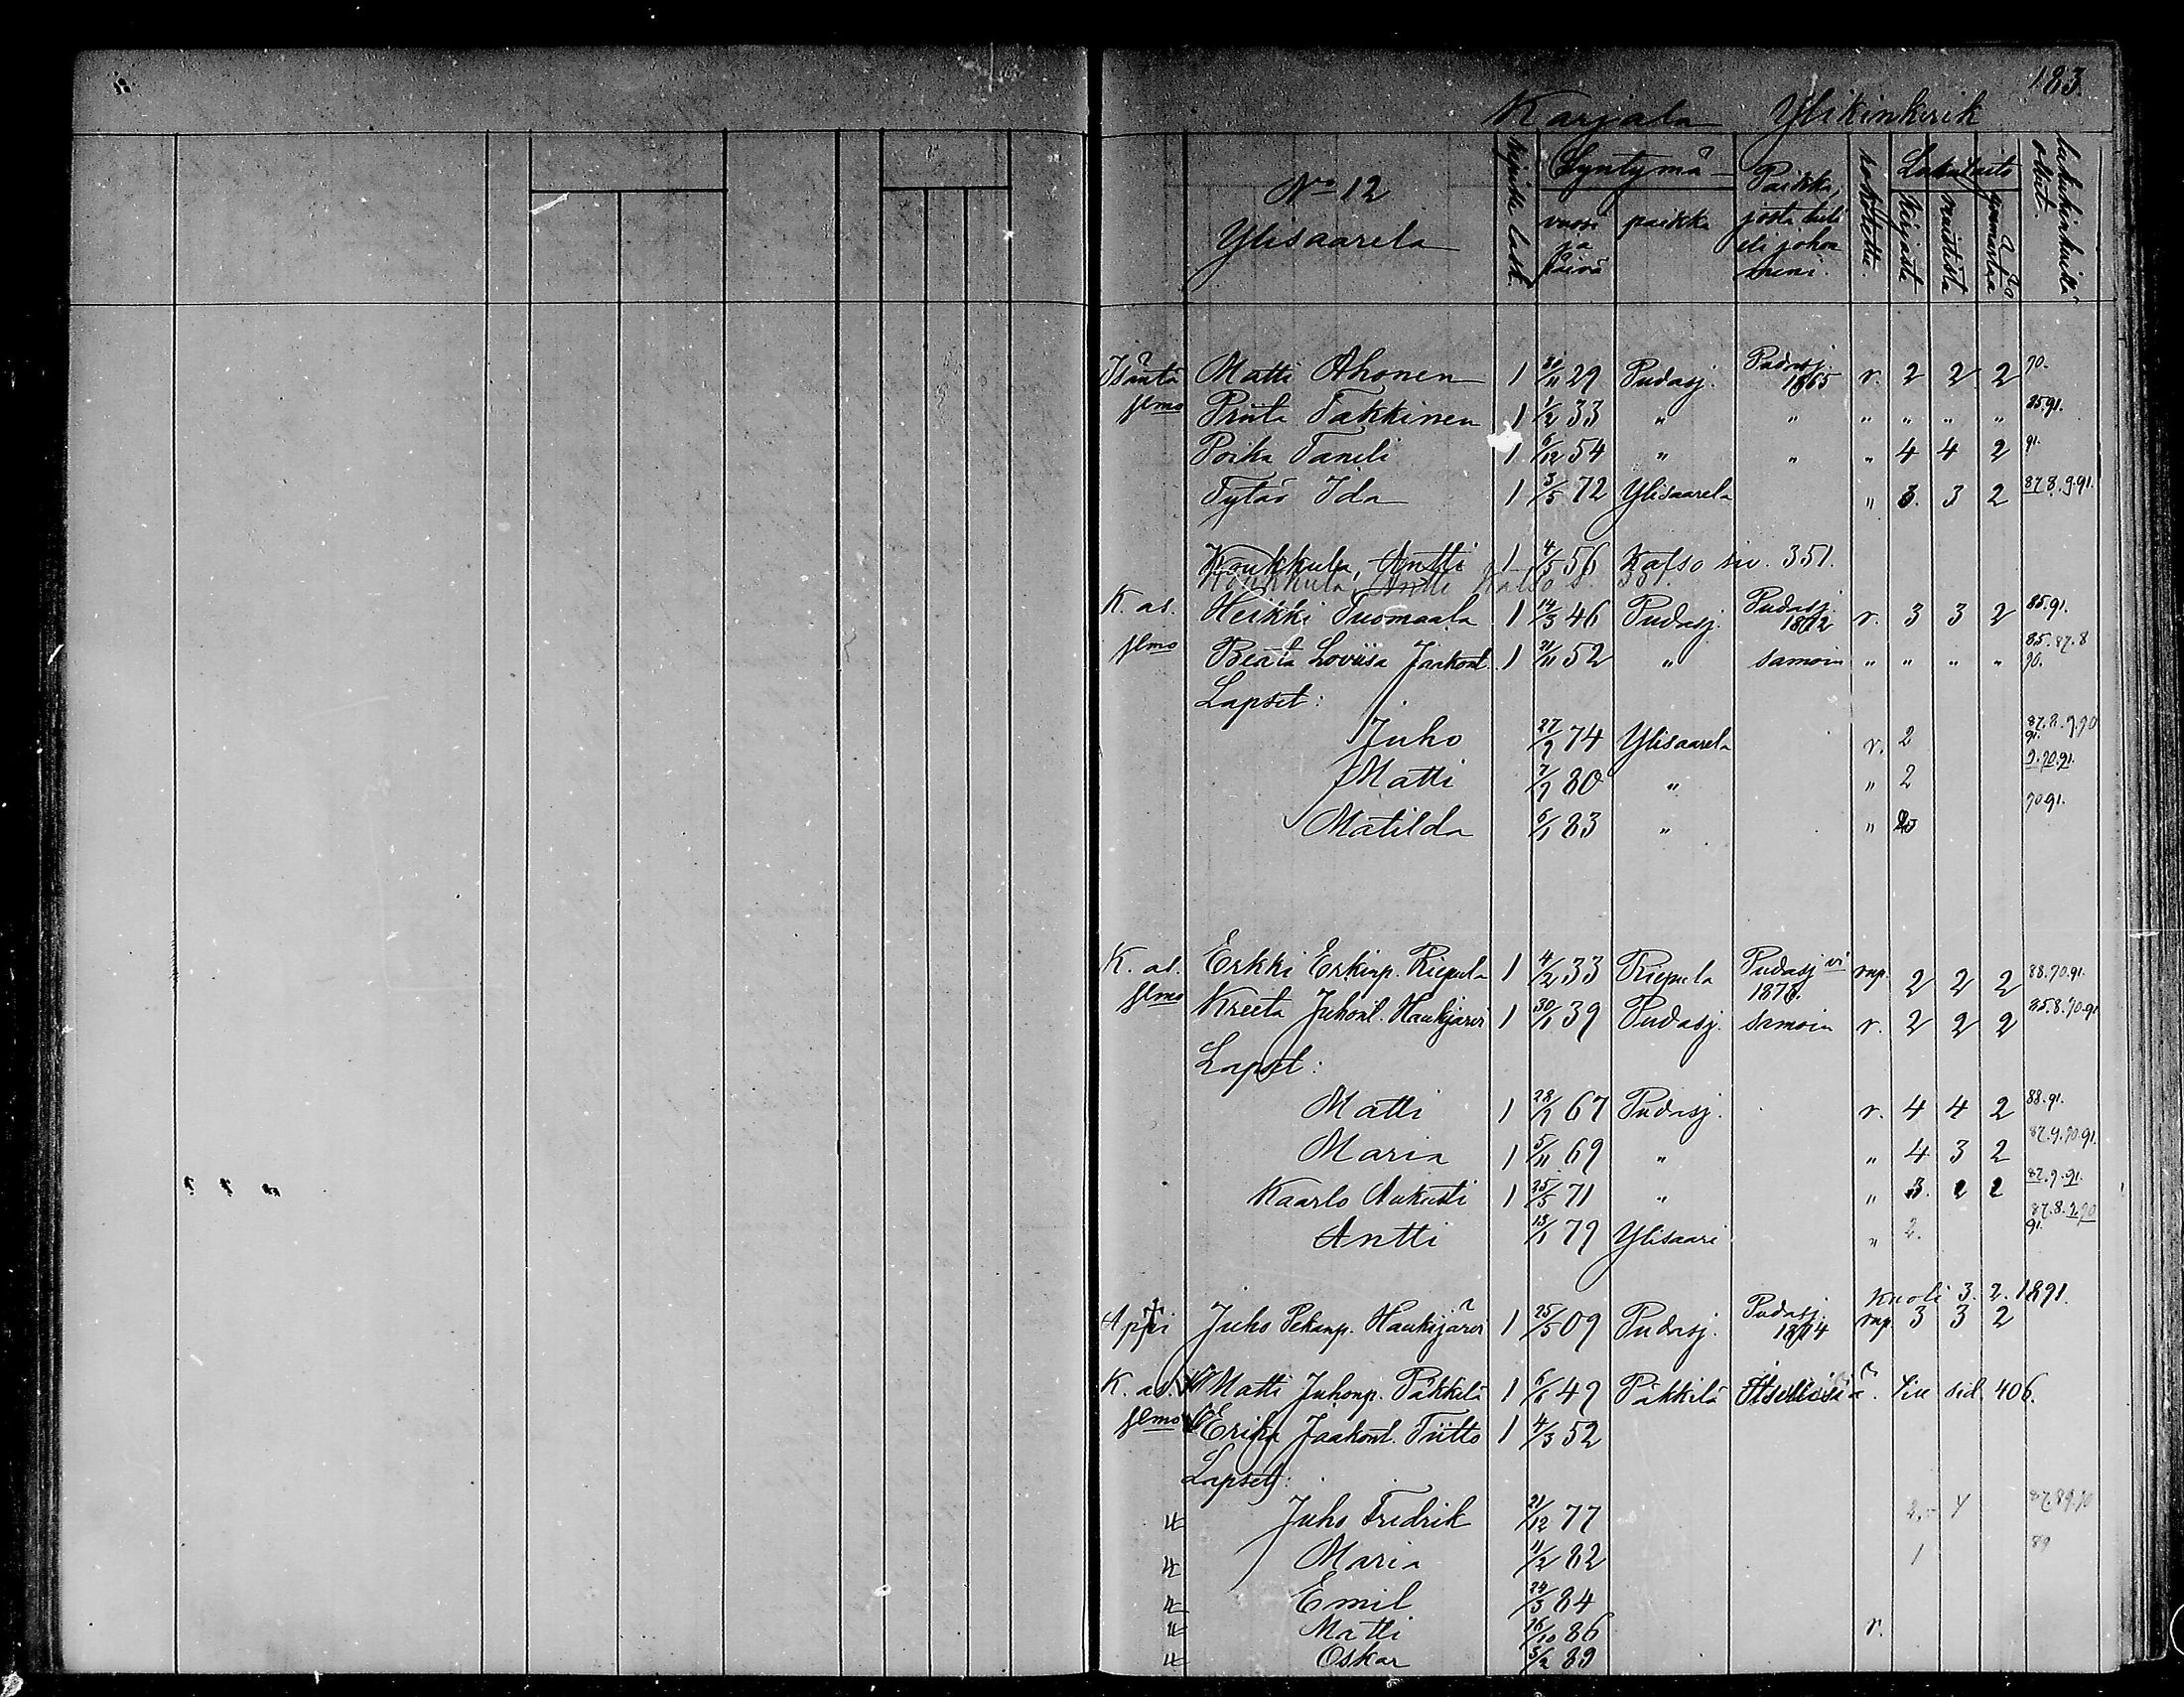 183.
Karjala Ylikinkerik
No 12
Ylisaarela
Syntymä-
vuosi ja päivä
paikka
Paikka, josta tuli eli johon meni.
rokotettu.
Lukutaito
kirjasta
muistista
ymmärtää
lukukinkerillä ollut.
Isäntä Matti Ahonen 1 30/11 29 Pudasj. Pudasj. 1865 r. 2 2 2 90.
Wmo Priita Takkinen 1 1/2 33 " " " " " " 85.91.
Poika Taneli 1 6/12 54 " " " 4 4 2 91.
Tytär Ida 1 3/5 72 Ylisaarela " 3. 3 2 87.8.9.91.
Koukkula, Antti 1 4/5 56 Katso siv. 351.
Koukkula, Antti Katso s. 351.
K. as. Heikki Tuomaala 1 14/3 46 Pudasj. Pudasj. 1872 r. 3 3 2 85.91.
Wmo Beata Loviisa Jaakont. 1 21/11 52 " samoin " " " " 85.87.8 90.
Lapset:
Juho 27/9 74 Ylisaarela r. 2 87.8.9.90 91.
Matti 7/9 80 " " 2 9.90.91.
Matilda 6/1 83 " " 90.91.
K. as. Erkki Erkinp. Riepula 1 4/2 33 Riepula Pudasj. 1876. rup. 2 2 2 88.90.91.
Wmo Kreeta Juhont. Haukijärvi 1 30/1 39 Pudasj. samoin r. 2 2 2 85.8.90.91
Lapset:
Matti 1 28/9 67 Pudasj. r. 4 4 2 88.91.
Maria 1 5/11 69 " " 4 3 2 87.9.90.91.
Kaarlo Aukusti 1 25/5 71 " " 3. 2 2 87.9.91.
Antti 13/1 79 Ylisaari " 2. 87.8.9.90 91.
Kuoli 3.2.1891.
Appi Juho Pekanp. Haukijärvi 1 25/5 09 Pudasj. Pudasj. 1874 rup. 3 3 2
K. as. Matti Juhonp. Päkkilä 1 6/6 49 Päkkilä Itsellisiä. siv. 406.
Wmo Erika Jaakont. Tiitto 1 4/3 52
Lapset:
Juho Fredrik 21/12 77
Maria 11/2 82 1 89
Emil 24/3 84
Matti 26/10 86 r.
Oskar 5/2 89